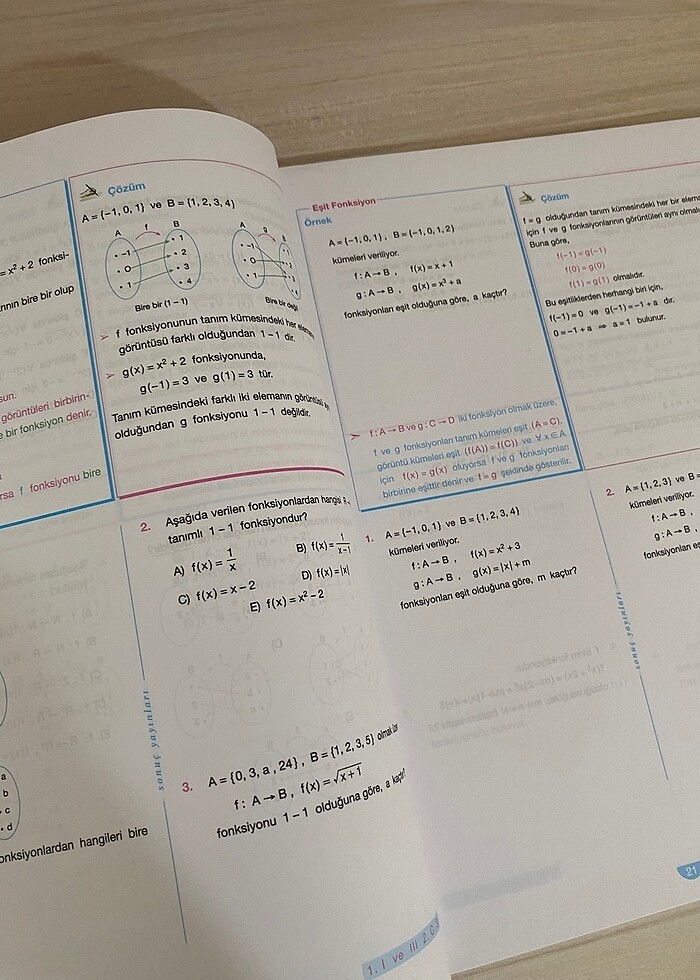 = x² + 2 fonksi-
rının bire bir olup
sun.
görüntüleri birbirin-
bir fonksiyon denir.
rsa f fonksiyonu bire
a
b
c
d
onksiyonlardan hangileri bire
Çözüm
A = {−1, 0, 1} ve B = {1, 2, 3, 4}
A f B
−1 1
0 2
1 3
4
A g B
−1
0
1
Bire bir (1 − 1)
Bire bir değil
➢ f fonksiyonunun tanım kümesindeki her
görüntüsü farklı olduğundan 1 − 1 dir.
➢ g(x) = x² + 2 fonksiyonunda,
g(−1) = 3 ve g(1) = 3 tür.
Tanım kümesindeki farklı iki elemanın görüntüsü
olduğundan g fonksiyonu 1 − 1 değildir.
2. Aşağıda verilen fonksiyonlardan hangisi
tanımlı 1 − 1 fonksiyondur?
A) f(x) = 1/x B) f(x) = 1/(x−1)
C) f(x) = x − 2 D) f(x) = |x|
E) f(x) = x² − 2
sonuç yayınları
3. A = {0, 3, a, 24}, B = {1, 2, 3, 5} olmak üzere
f : A → B, f(x) = √(x+1)
fonksiyonu 1 − 1 olduğuna göre, a kaçtır?
1. I ve III 2. C
Eşit Fonksiyon
Örnek
A = {−1, 0, 1}, B = {−1, 0, 1, 2}
kümeleri veriliyor.
f : A → B, f(x) = x + 1
g : A → B, g(x) = x³ + a
fonksiyonları eşit olduğuna göre, a kaçtır?
➢ f : A → B ve g : C → D iki fonksiyon olmak üzere,
f ve g fonksiyonları tanım kümeleri eşit (A = C),
görüntü kümeleri eşit (f(A)) = f(C)) ve ∀x∈A
için f(x) = g(x) oluyorsa f ve g fonksiyonları
birbirine eşittir denir ve f = g şeklinde gösterilir.
1. A = {−1, 0, 1} ve B = {1, 2, 3, 4}
kümeleri veriliyor.
f : A → B, f(x) = x² + 3
g : A → B, g(x) = |x| + m
fonksiyonları eşit olduğuna göre, m kaçtır?
Çözüm
f = g olduğundan tanım kümesindeki her bir
için f ve g fonksiyonlarının görüntüleri aynı
Buna göre,
f(−1) = g(−1)
f(0) = g(0)
f(1) = g(1) olmalıdır.
Bu eşitliklerden herhangi biri için,
f(−1) = 0 ve g(−1) = −1 + a dır.
0 = −1 + a ⇒ a = 1 bulunur.
2. A = {1, 2, 3} ve B =
kümeleri veriliyor.
f : A → B,
g : A → B,
fonksiyonları
sonuç yayınları
21